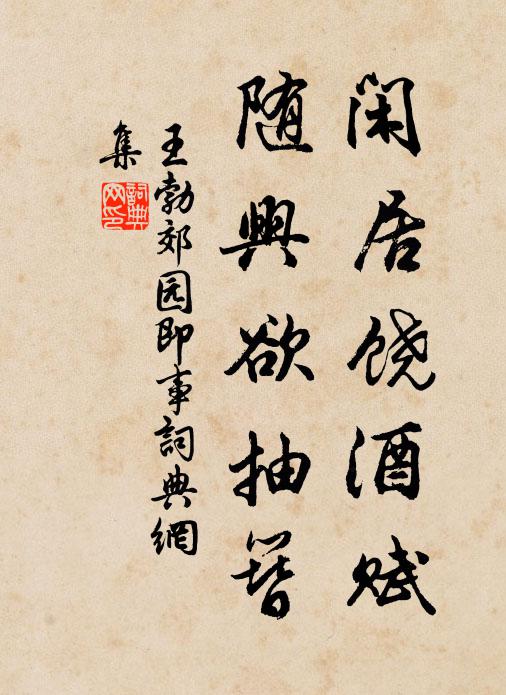 闲居饶酒赋
随興欲抽簪
王勃郊园即事詞典網
集
詞典
网印